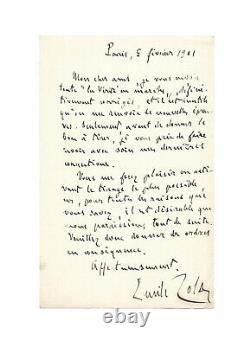 Paris, 5 février 1901
Mon cher ami, je vous ren-
"la Vérité en marche", défini-
tivement corrigée, et il est inutile
qu'on me renvoie de nouvelles épreu-
ves. Seulement, avant de donner le
bon à tirer, je vous prie de faire
revoir avec soin mes dernières
corrections.
Vous me ferez plaisir en acti-
vant le tirage le plus possible
car, pour toutes les raisons que
vous savez, il est désirable que
nous paraissions tout de suite.
Veuillez donc donner des ordres
en conséquence.
Affectueusement.
Emile Zola